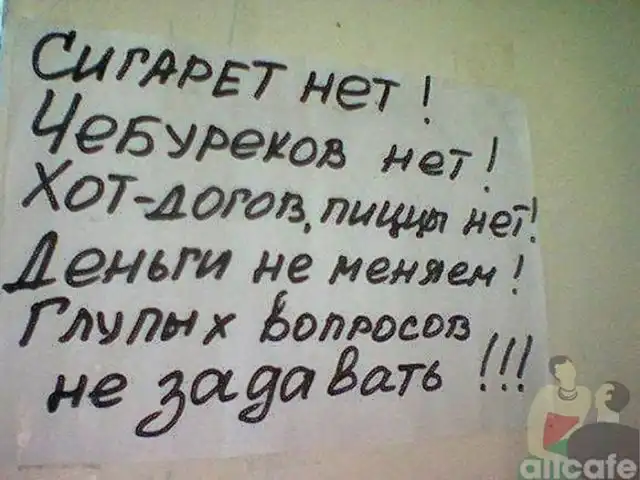 Сигарет нет!
Чебуреков нет!
Хот-догов, пиццы нет!
Деньги не меняем!
Глупых вопросов
не задавать!!!
allcafe